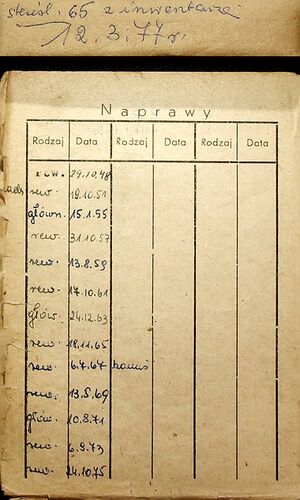 skreśl. 65 z inwentarza
12.3.77 r.
Naprawy
Rodzaj Data Rodzaj Data Rodzaj Data
rew. 29.10.48
rew. 19.10.51
główn. 15.1.55
rew. 31.10.57
rew. 13.8.59
rew. 17.10.61
główn. 24.12.63
rew. 18.11.65
rew. 6.7.67
rew. 13.8.69
główn. 10.8.71
rew. 6.9.73
rew. 24.10.75